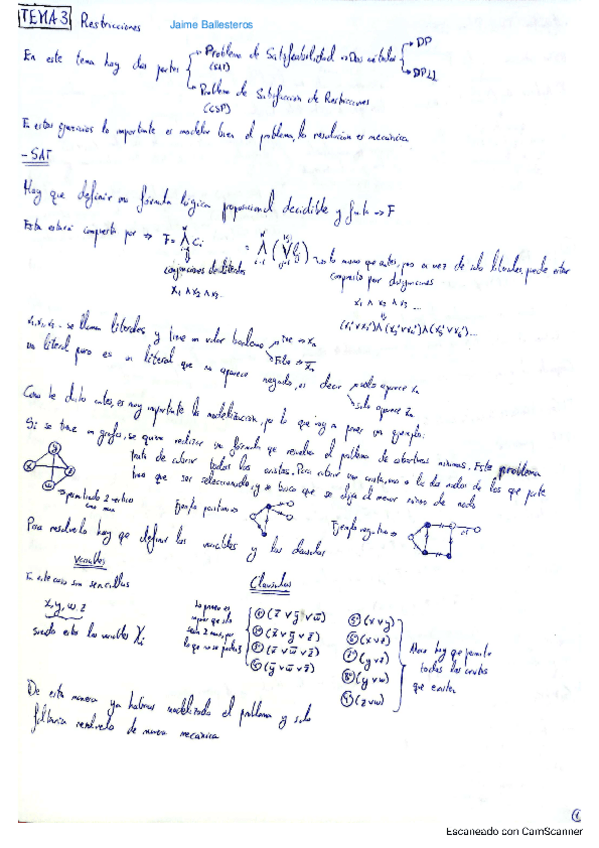 TEMA 3 Restricciones Jaime Ballesteros
En este tema hay dos partes
Problema de Satisfacibilidad → Dos métodos
(SAT)
DP
DPLL
Problema de Satisfacción de Restricciones
(CSP)
En estos ejercicios lo importante es modelar bien el problema, la resolución es mecánica
- SAT
Hay que definir una fórmula lógica proposicional decidible y finita → F
Esta estará compuesta por →
lo mismo que antes, pero en vez de solo literales, puede estar
compuesto por disyunciones
conjunciones de literales
x₁ ∧ x₂ ∧ x₃
x₁ ∧ x₂ ∧ x₃ ...
se llaman literales y tiene un valor booleano
un literal puro es un literal que no aparece negado, es decir
solo aparece
solo aparece
Como he dicho antes, es muy importante la modelización, por lo que voy a poner un ejemplo:
Si se tiene un grafo, se quiere realizar una fórmula que resuelva el problema de cobertura mínima. Este problema
trata de cubrir todas las aristas. Para cubrir una arista, uno de los dos nodos de los que parte
tiene que ser seleccionado, y se busca que se elija el menor número de nodos
Ejemplo positivo →
Ejemplo negativo →
Para resolverlo hay que definir las variables y las clausulas
Variables
Clausulas
En este caso son sencillas
x, y, w, z
siendo estas las variables Xi
1º (x̄ ∨ ȳ ∨ w̄)
2º (x̄ ∨ ȳ ∨ z̄)
3º (x̄ ∨ w̄ ∨ z̄)
4º (ȳ ∨ w̄ ∨ z̄)
5º (x ∨ y)
6º (x ∨ z)
7º (y ∨ z)
8º (y ∨ w)
9º (z ∨ w)
Ahora hay que permitir
todas las aristas
que existen
De esta manera ya habríamos modelizado el problema y solo
faltaría resolverlo de manera mecánica
1
Escaneado con CamScanner